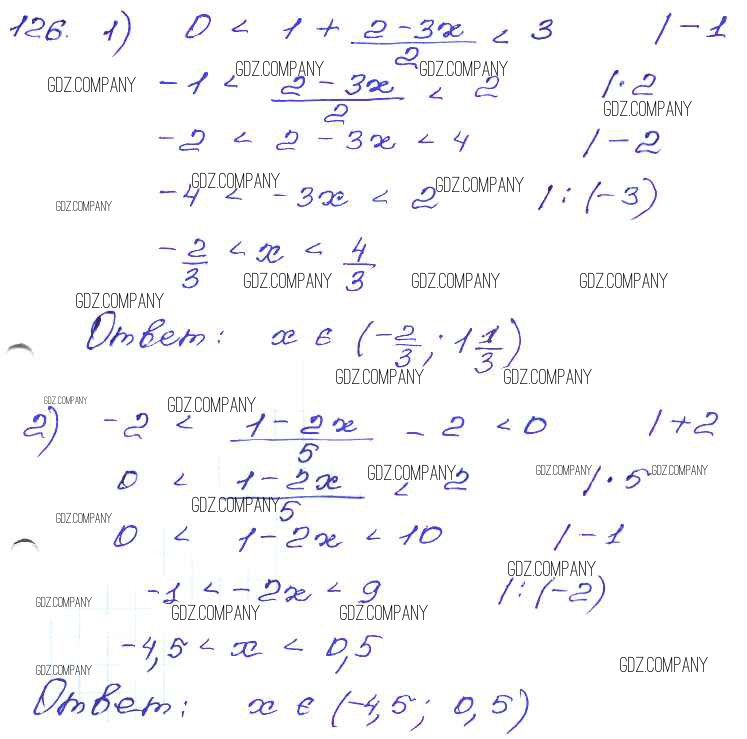 126. 1) 0 < 1 + (2-3x)/2 < 3 |-1
GDZ.COMPANY GDZ.COMPANY
GDZ.COMPANY -1 < (2-3x)/2 < 2 |·2
GDZ.COMPANY
-2 < 2-3x < 4 |-2
GDZ.COMPANY GDZ.COMPANY
-4 < -3x < 2 |:(-3)
GDZ.COMPANY
-2/3 < x < 4/3
GDZ.COMPANY GDZ.COMPANY GDZ.COMPANY
GDZ.COMPANY
Ответ: x ∈ (-2/3; 1 1/3)
GDZ.COMPANY GDZ.COMPANY
GDZ.COMPANY GDZ.COMPANY
2) -2 < (1-2x)/5 - 2 < 0 |+2
0 < (1-2x)/5 < 2 |·5
GDZ.COMPANY GDZ.COMPANY GDZ.COMPANY
GDZ.COMPANY
GDZ.COMPANY
0 < 1-2x < 10 |-1
GDZ.COMPANY
-1 < -2x < 9 |:(-2)
GDZ.COMPANY GDZ.COMPANY GDZ.COMPANY
-4,5 < x < 0,5
GDZ.COMPANY GDZ.COMPANY
Ответ: x ∈ (-4,5; 0,5)